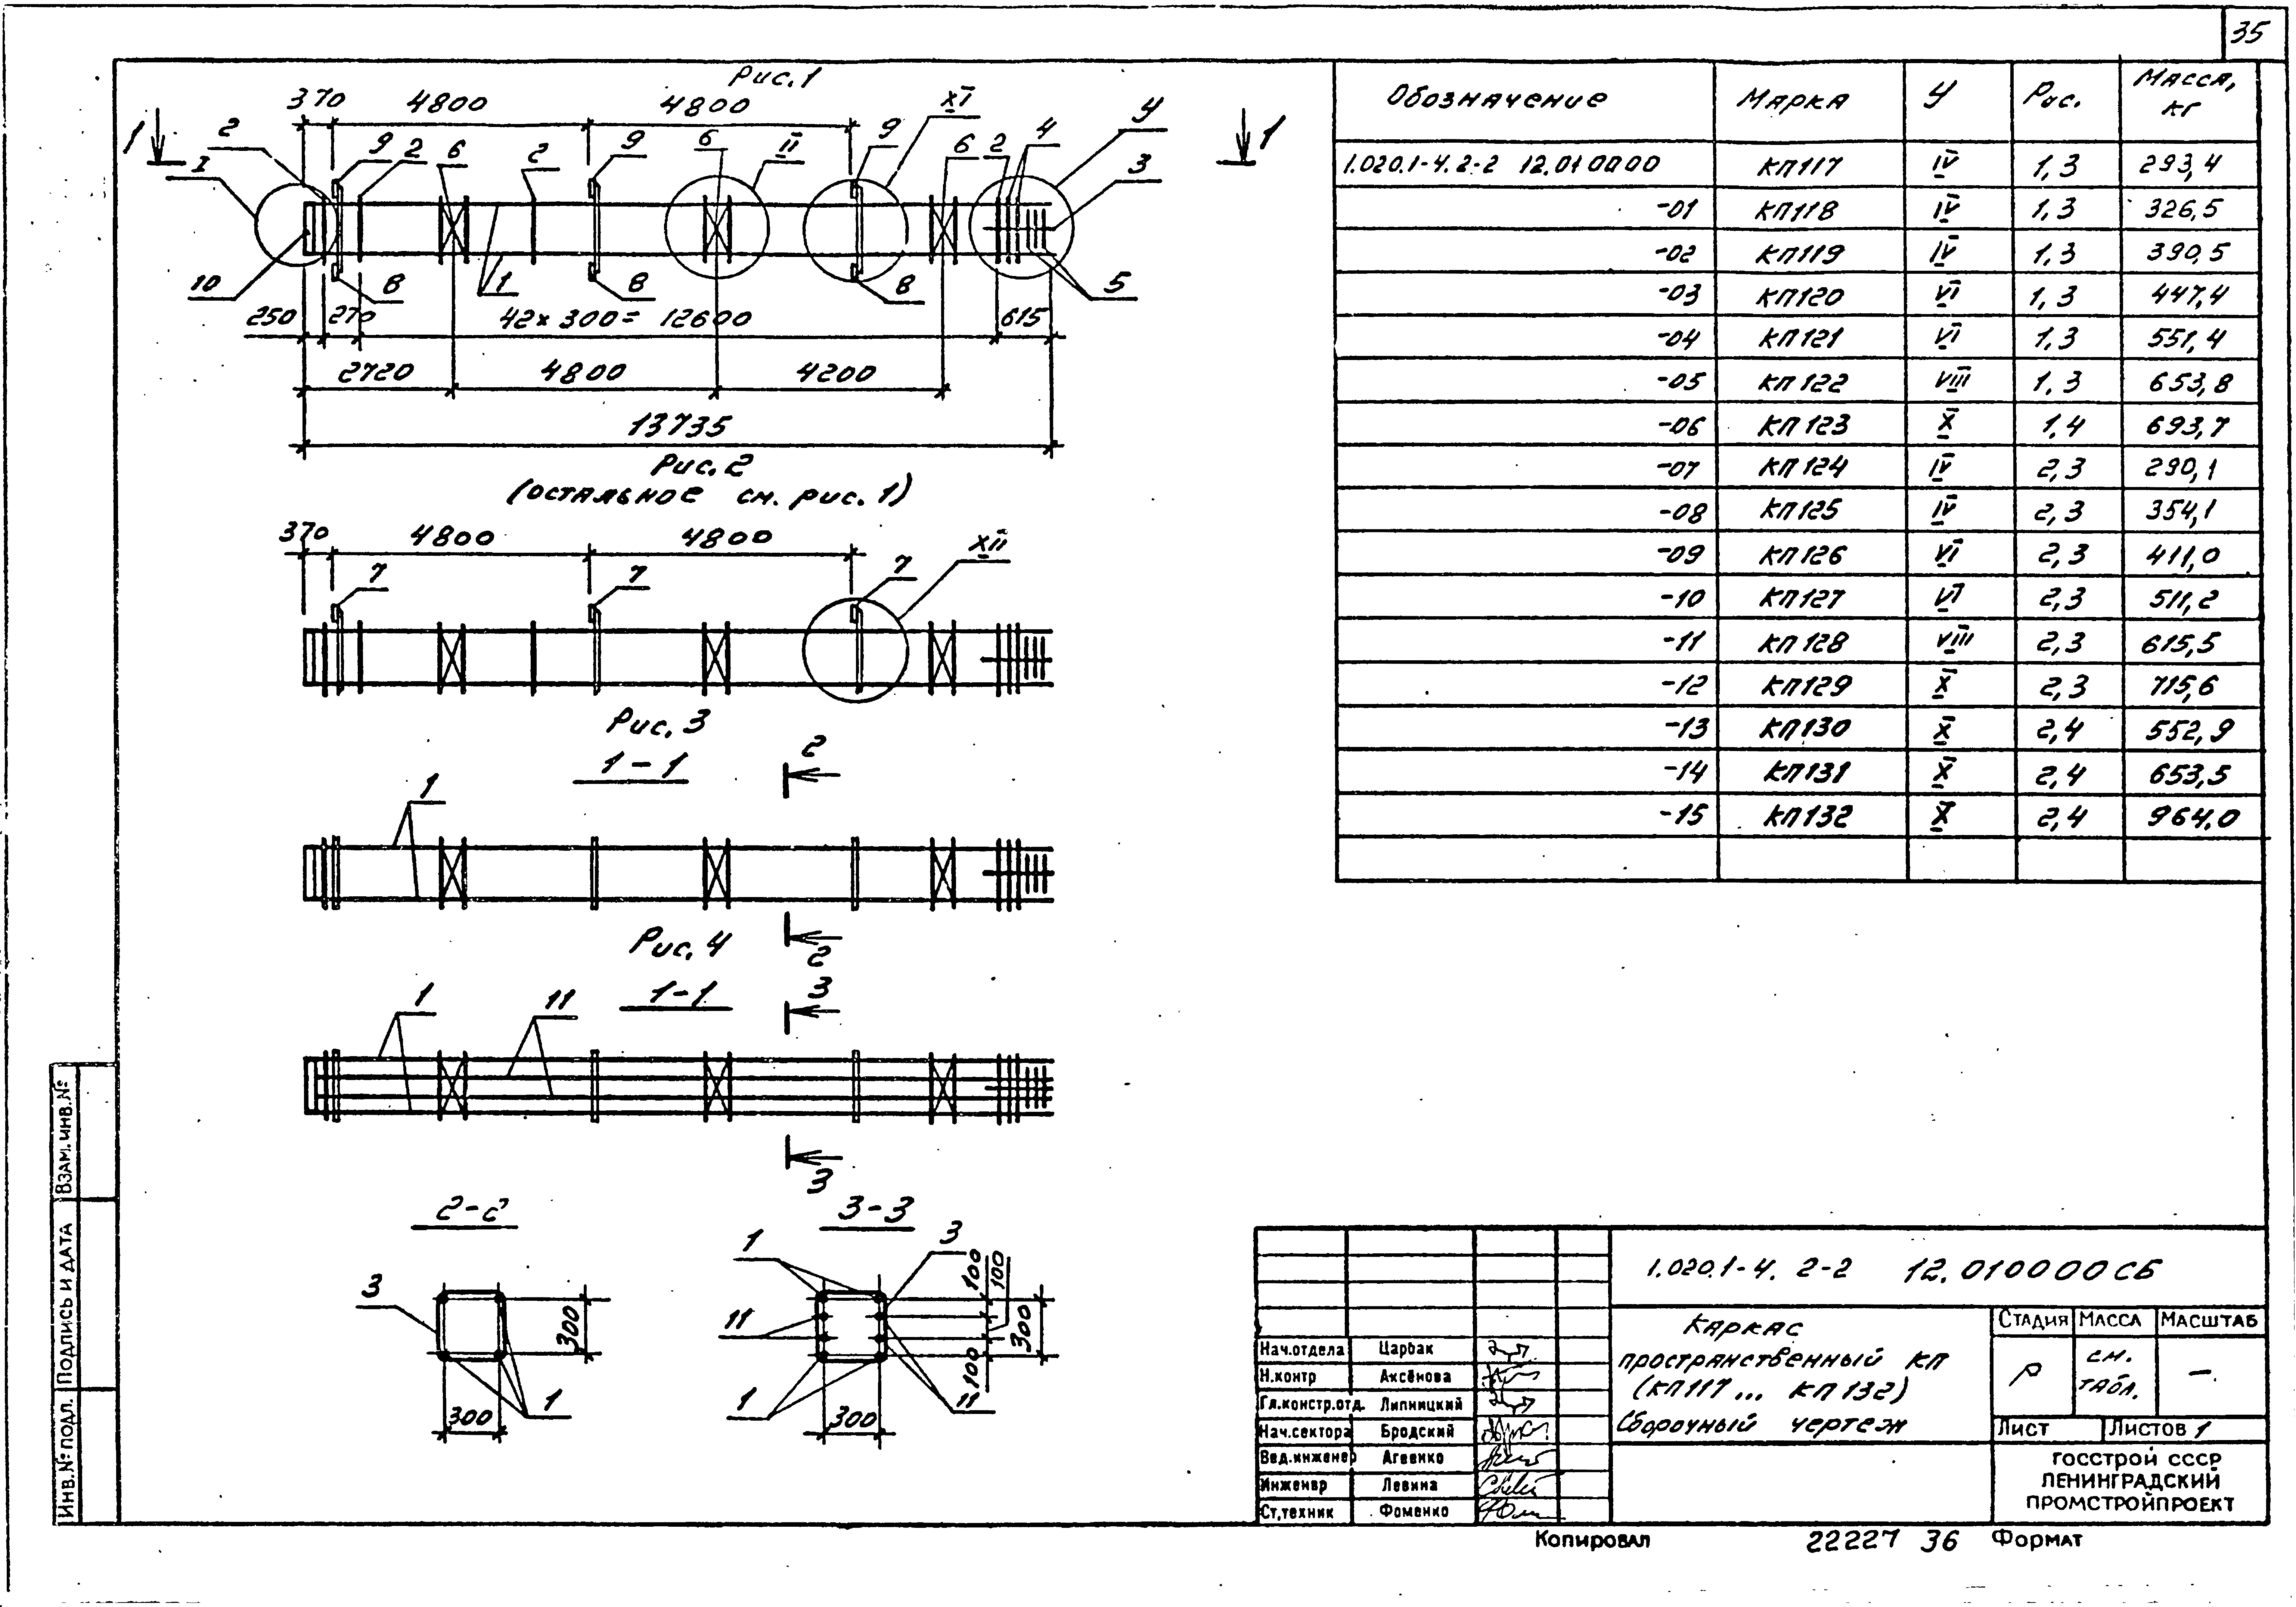 35
Рис. 1
370 4800 4800 XI
1 2 9 2 6 2 9 6 II 9 6 2 4 У 1
I 3
10 8 1 8 8 5
250 270 42 х 300 = 12600 615
2720 4800 4200
13735
Рис. 2
(остальное см. рис. 1)
370 4800 4800 XII
7 7 7
Рис. 3
1-1
2
1
2
Рис. 4
1-1
3
1 11
3
2-2
3
300
1
300
3-3
1 3
100 100
11
300
100
1 11
300
Обозначение Марка У Рис. Масса, кг
1.020.1-4.2-2 12.010000 КП117 IV 1,3 293,4
-01 КП118 IV 1,3 326,5
-02 КП119 IV 1,3 390,5
-03 КП120 VI 1,3 447,4
-04 КП121 VI 1,3 551,4
-05 КП122 VIII 1,3 653,8
-06 КП123 X 1,4 693,7
-07 КП124 IV 2,3 290,1
-08 КП125 IV 2,3 354,1
-09 КП126 VI 2,3 411,0
-10 КП127 VI 2,3 511,2
-11 КП128 VIII 2,3 615,5
-12 КП129 X 2,3 715,6
-13 КП130 X 2,4 552,9
-14 КП131 X 2,4 653,5
-15 КП132 X 2,4 964,0
1.020.1-4. 2-2 12.010000СБ
Каркас
пространственный КП
(КП117... КП132)
Сборочный чертеж
Стадия Масса Масштаб
Р см. табл. –
Лист Листов 1
ГОССТРОЙ СССР
ЛЕНИНГРАДСКИЙ
ПРОМСТРОЙПРОЕКТ
Нач.отдела Царбак
Н.контр Аксёнова
Гл.констр.отд. Липницкий
Нач.сектора Бродский
Вед.инженер Агеенко
Инженер Левина
Ст,техник Фоменко
Копировал 22227 36 Формат
Инв.№ подл. Подпись и дата Взам.инв.№